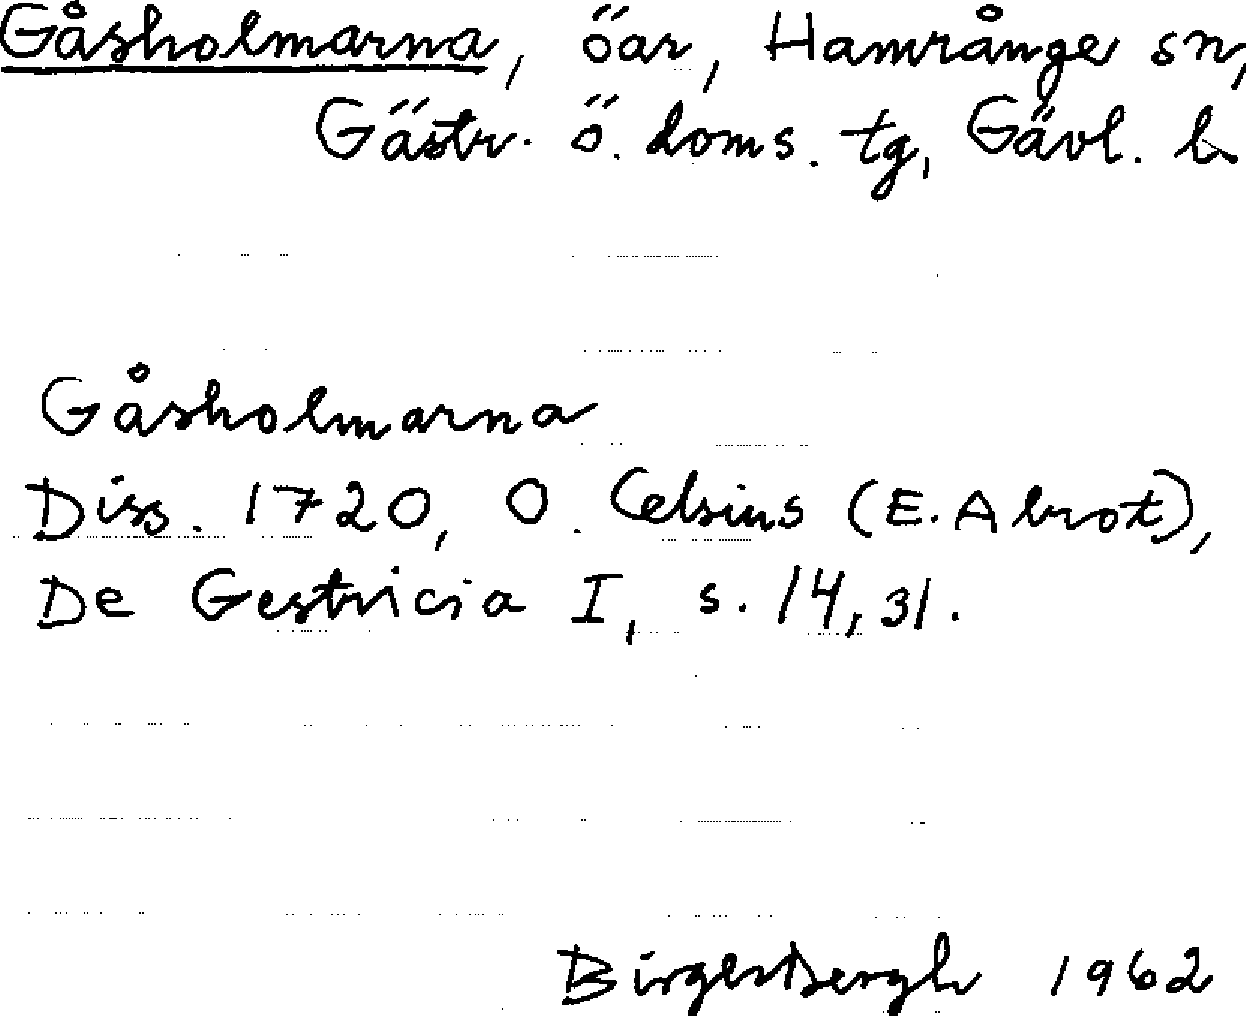 Gåsholmarna, öar, Hamrånge sn,
Gästr. ö. doms. tg, Gävl. l.
Gåsholmarna
Diss. 1720, O. Celsius (E. Abrot),
De Gestricia I, s. 14, 31.
Birger Bergh 1962